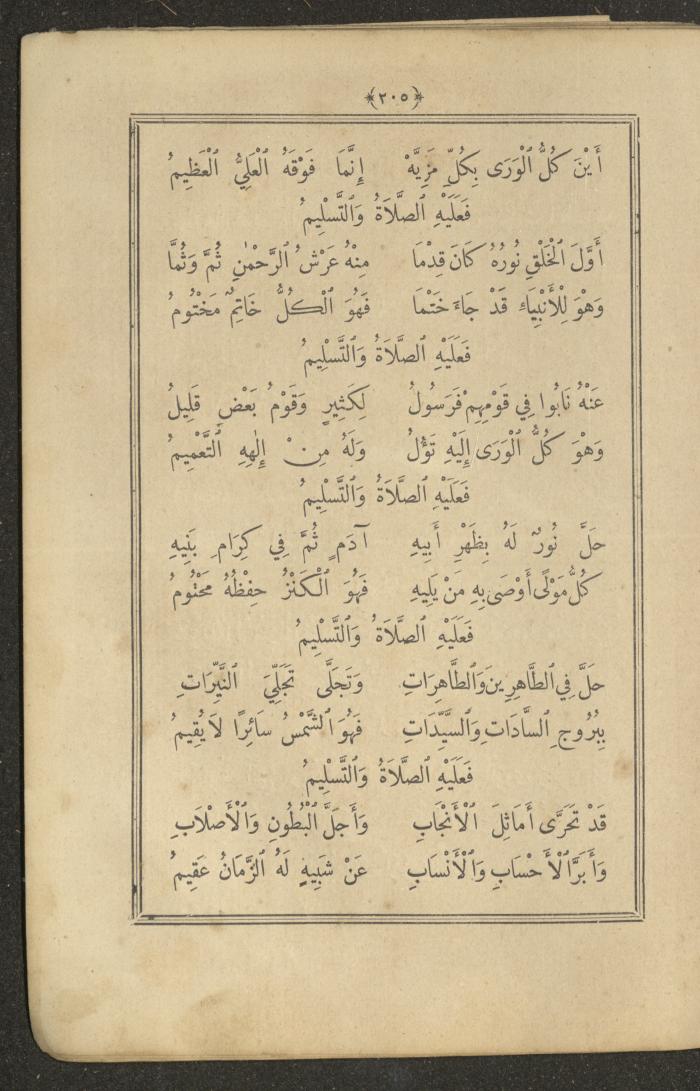 ﴿٢٠٥﴾
أَيْنَ كُلُّ ٱلْوَرَى بِكُلِّ مَزِيَّهْ إِنَّمَا فَوْقَهُ ٱلْعَلِيُّ ٱلْعَظِيمُ
فَعَلَيْهِ ٱلصَّلَاةُ وَٱلتَّسْلِيمُ
أَوَّلَ ٱلْخَلْقِ نُورُهُ كَانَ قِدْمَا مِنْهُ عَرْشُ ٱلرَّحْمٰنِ ثُمَّ وَثُمَّا
وَهْوَ لِلْأَنْبِيَاءِ قَدْ جَاءَ خَتْمَا فَهُوَ ٱلْكُلُّ خَاتِمٌ مَخْتُومُ
فَعَلَيْهِ ٱلصَّلَاةُ وَٱلتَّسْلِيمُ
عَنْهُ نَابُوا فِي قَوْمِهِمْ فَرَسُولُ لِكَثِيرٍ وَقَوْمُ بَعْضٍ قَلِيلُ
وَهْوَ كُلُّ ٱلْوَرَى إِلَيْهِ تَؤُلُ وَلَهُ مِنْ إِلٰهِهِ ٱلتَّعْمِيمُ
فَعَلَيْهِ ٱلصَّلَاةُ وَٱلتَّسْلِيمُ
حَلَّ نُورٌ لَهُ بِظَهْرِ أَبِيهِ آدَمٍ ثُمَّ فِي كِرَامِ بَنِيهِ
كُلُّ مَوْلًى أَوْصَى بِهِ مَنْ يَلِيهِ فَهُوَ ٱلْكَنْزُ حِفْظُهُ مَحْتُومُ
فَعَلَيْهِ ٱلصَّلَاةُ وَٱلتَّسْلِيمُ
حَلَّ فِي ٱلطَّاهِرِينَ وَٱلطَّاهِرَاتِ وَتَجَلَّى تَجَلِّيَ ٱلنَّيِّرَاتِ
بِبُرُوجِ ٱلسَّادَاتِ وَٱلسَّيِّدَاتِ فَهُوَ ٱلشَّمْسُ سَائِرًا لَا يُقِيمُ
فَعَلَيْهِ ٱلصَّلَاةُ وَٱلتَّسْلِيمُ
قَدْ تَحَرَّى أَمَاثِلَ ٱلْأَنْجَابِ وَأَجَلَّ ٱلْبُطُونِ وَٱلْأَصْلَابِ
وَأَبَرَّ ٱلْأَحْسَابِ وَٱلْأَنْسَابِ عَنْ شَبِيهٍ لَهُ ٱلزَّمَانُ عَقِيمُ